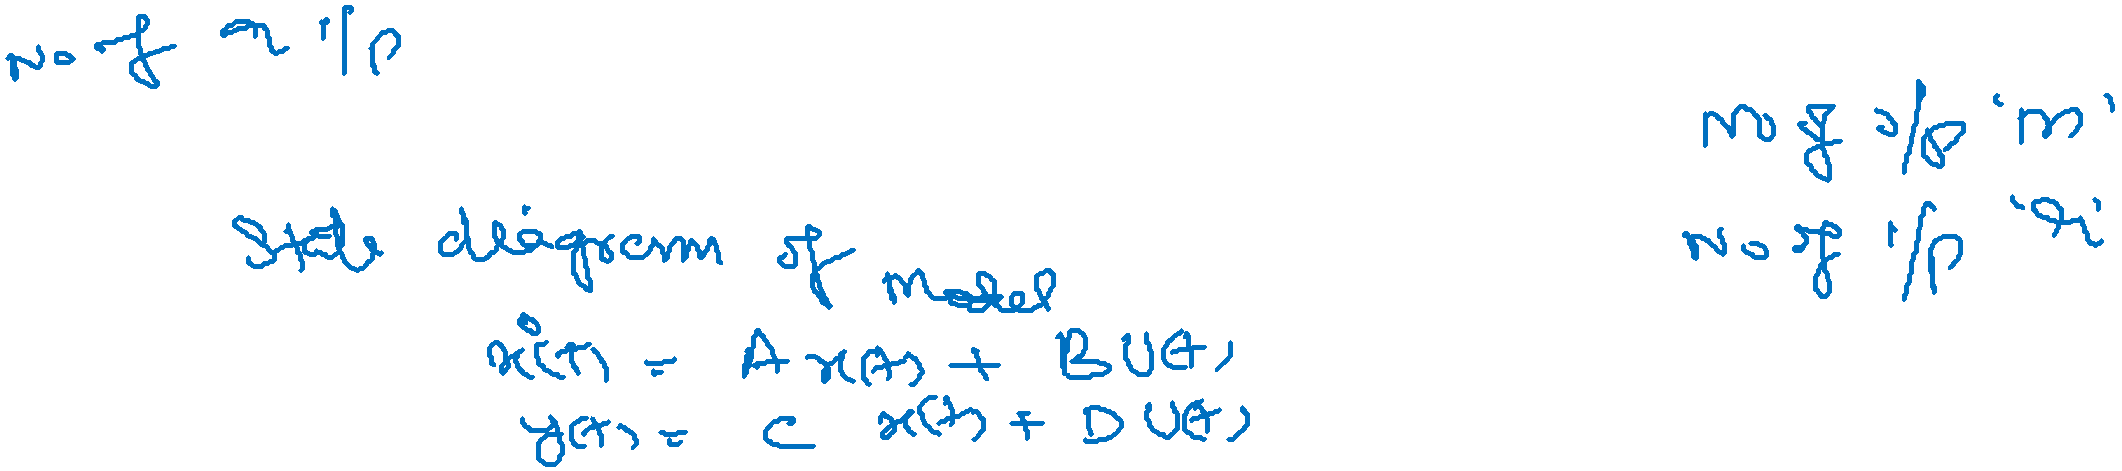 No of n i/p
No of o/p 'm'
No of i/p 'n'
State diagram of model
ẋ(t) = A x(t) + B U(t)
y(t) = C x(t) + D U(t)